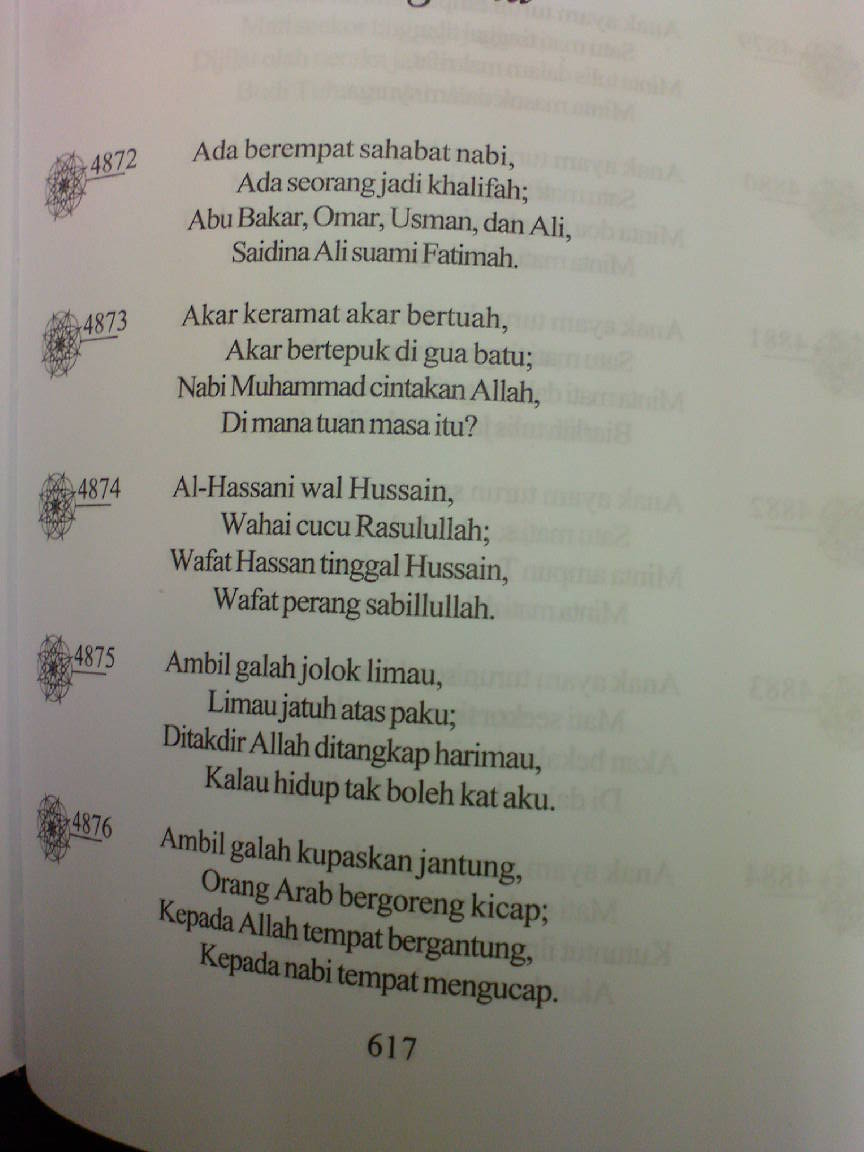 4872
Ada berempat sahabat nabi,
Ada seorang jadi khalifah;
Abu Bakar, Omar, Usman, dan Ali,
Saidina Ali suami Fatimah.
4873
Akar keramat akar bertuah,
Akar bertepuk di gua batu;
Nabi Muhammad cintakan Allah,
Di mana tuan masa itu?
4874
Al-Hassani wal Hussain,
Wahai cucu Rasulullah;
Wafat Hassan tinggal Hussain,
Wafat perang sabillullah.
4875
Ambil galah jolok limau,
Limau jatuh atas paku;
Ditakdir Allah ditangkap harimau,
Kalau hidup tak boleh kat aku.
4876
Ambil galah kupaskan jantung,
Orang Arab bergoreng kicap;
Kepada Allah tempat bergantung,
Kepada nabi tempat mengucap.
617